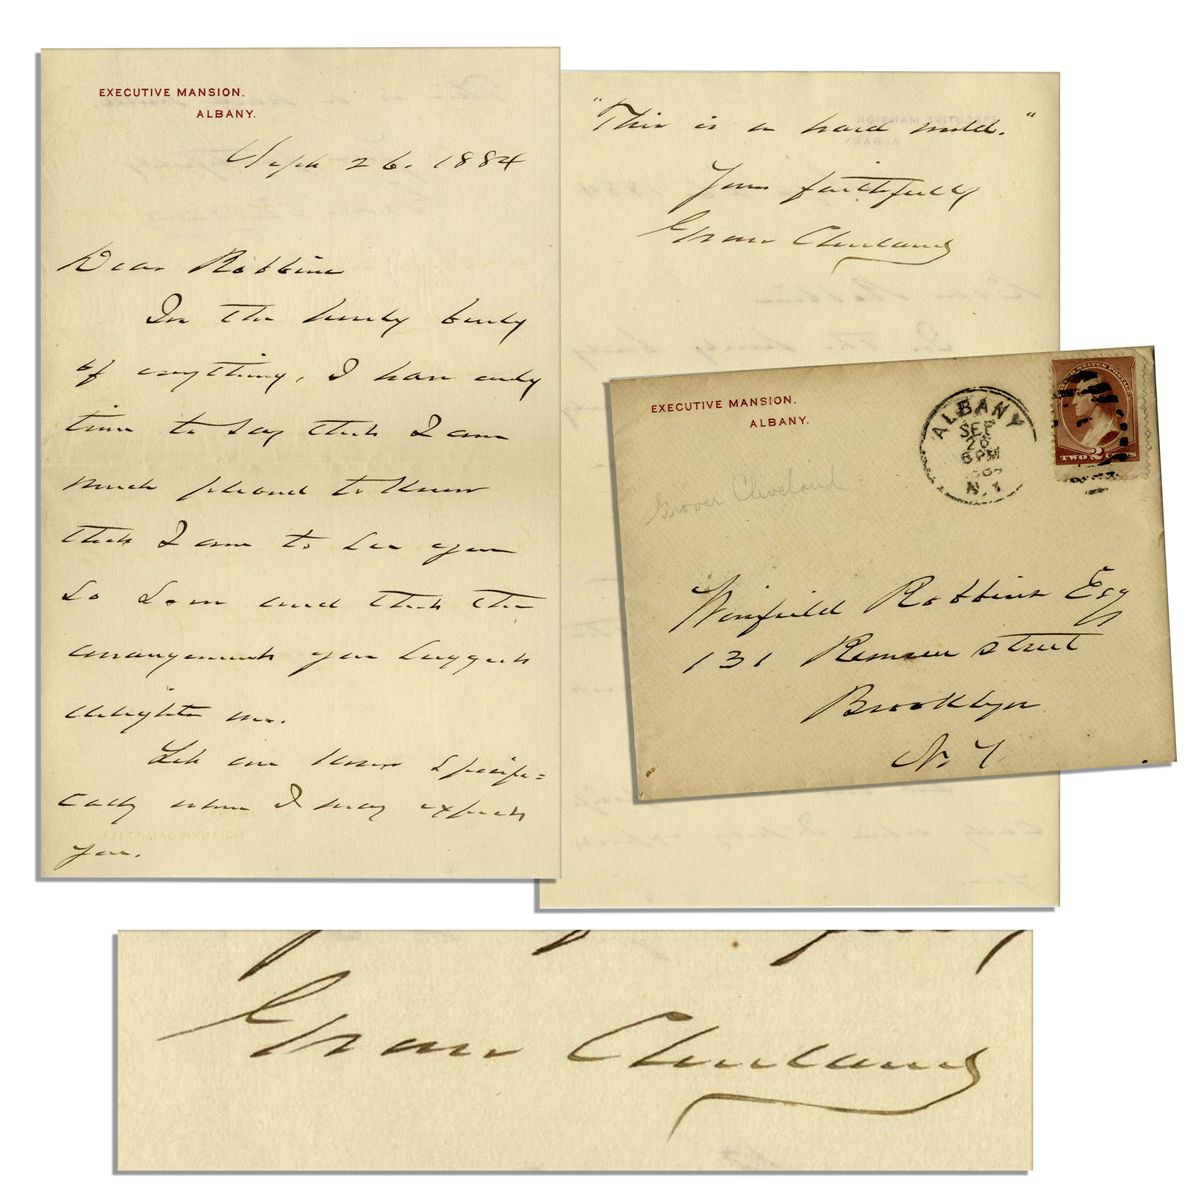 EXECUTIVE MANSION.
ALBANY.
Sept 26. 1884
Dear Robbins
In the hurly burly
of everything, I have only
time to say that I am
much pleased to know
that I am to see you
so soon and that the
arrangement you suggest
delights me.
Let me know specifi=
cally when I may expect
you.
"This is a hard world."
Yours faithfully
Grover Cleveland
EXECUTIVE MANSION.
ALBANY.
Grover Cleveland
ALBANY
SEP
26
6 PM
N.Y.
TWO 2 CENTS
Winfield Robbins Esq
131 Remsen street
Brooklyn
N. Y.
Grover Cleveland